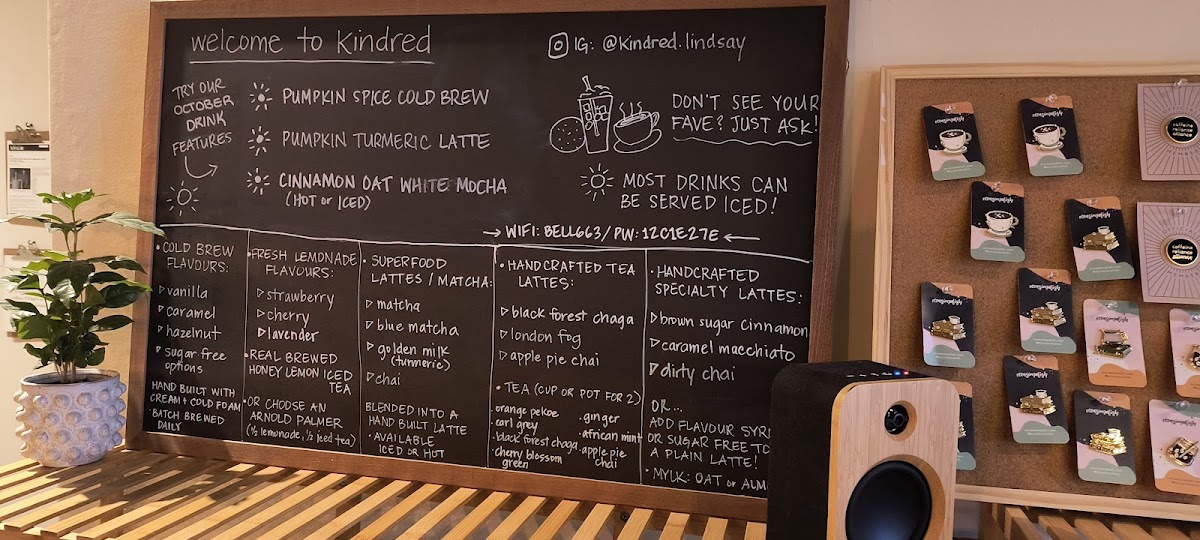 welcome to Kindred
IG: @Kindred.lindsay
TRY OUR
OCTOBER
DRINK
FEATURES
PUMPKIN SPICE COLD BREW
PUMPKIN TURMERIC LATTE
CINNAMON OAT WHITE MOCHA
(HOT or ICED)
DON'T SEE YOUR
FAVE? JUST ASK!
MOST DRINKS CAN
BE SERVED ICED!
→ WIFI: BELL663 / PW: 12C1E27E ←
• COLD BREW
FLAVOURS:
▷ vanilla
▷ caramel
▷ hazelnut
▷ sugar free
options
HAND BUILT WITH
CREAM + COLD FOAM
• BATCH BREWED
DAILY
• FRESH LEMONADE
FLAVOURS:
▷ strawberry
▷ cherry
▷ lavender
• REAL BREWED
HONEY LEMON ICED
TEA
• OR CHOOSE AN
ARNOLD PALMER
(½ lemonade, ½ iced tea)
• SUPERFOOD
LATTES / MATCHA:
▷ matcha
▷ blue matcha
▷ golden milk
(turmeric)
▷ chai
BLENDED INTO A
HAND BUILT LATTE
• AVAILABLE
ICED OR HOT
• HANDCRAFTED TEA
LATTES:
▷ black forest chaga
▷ london fog
▷ apple pie chai
• TEA (CUP OR POT FOR 2)
• orange pekoe
• earl grey
• black forest chaga
• cherry blossom
green
• ginger
• african mint
• apple pie
chai
• HANDCRAFTED
SPECIALTY LATTES:
▷ brown sugar cinnamon
▷ caramel macchiato
▷ dirty chai
OR...
ADD FLAVOUR SYR
OR SUGAR FREE TO
A PLAIN LATTE!
• MYLK: OAT or ALM
caffeine
reliance
alliance
caffeine
reliance
alliance